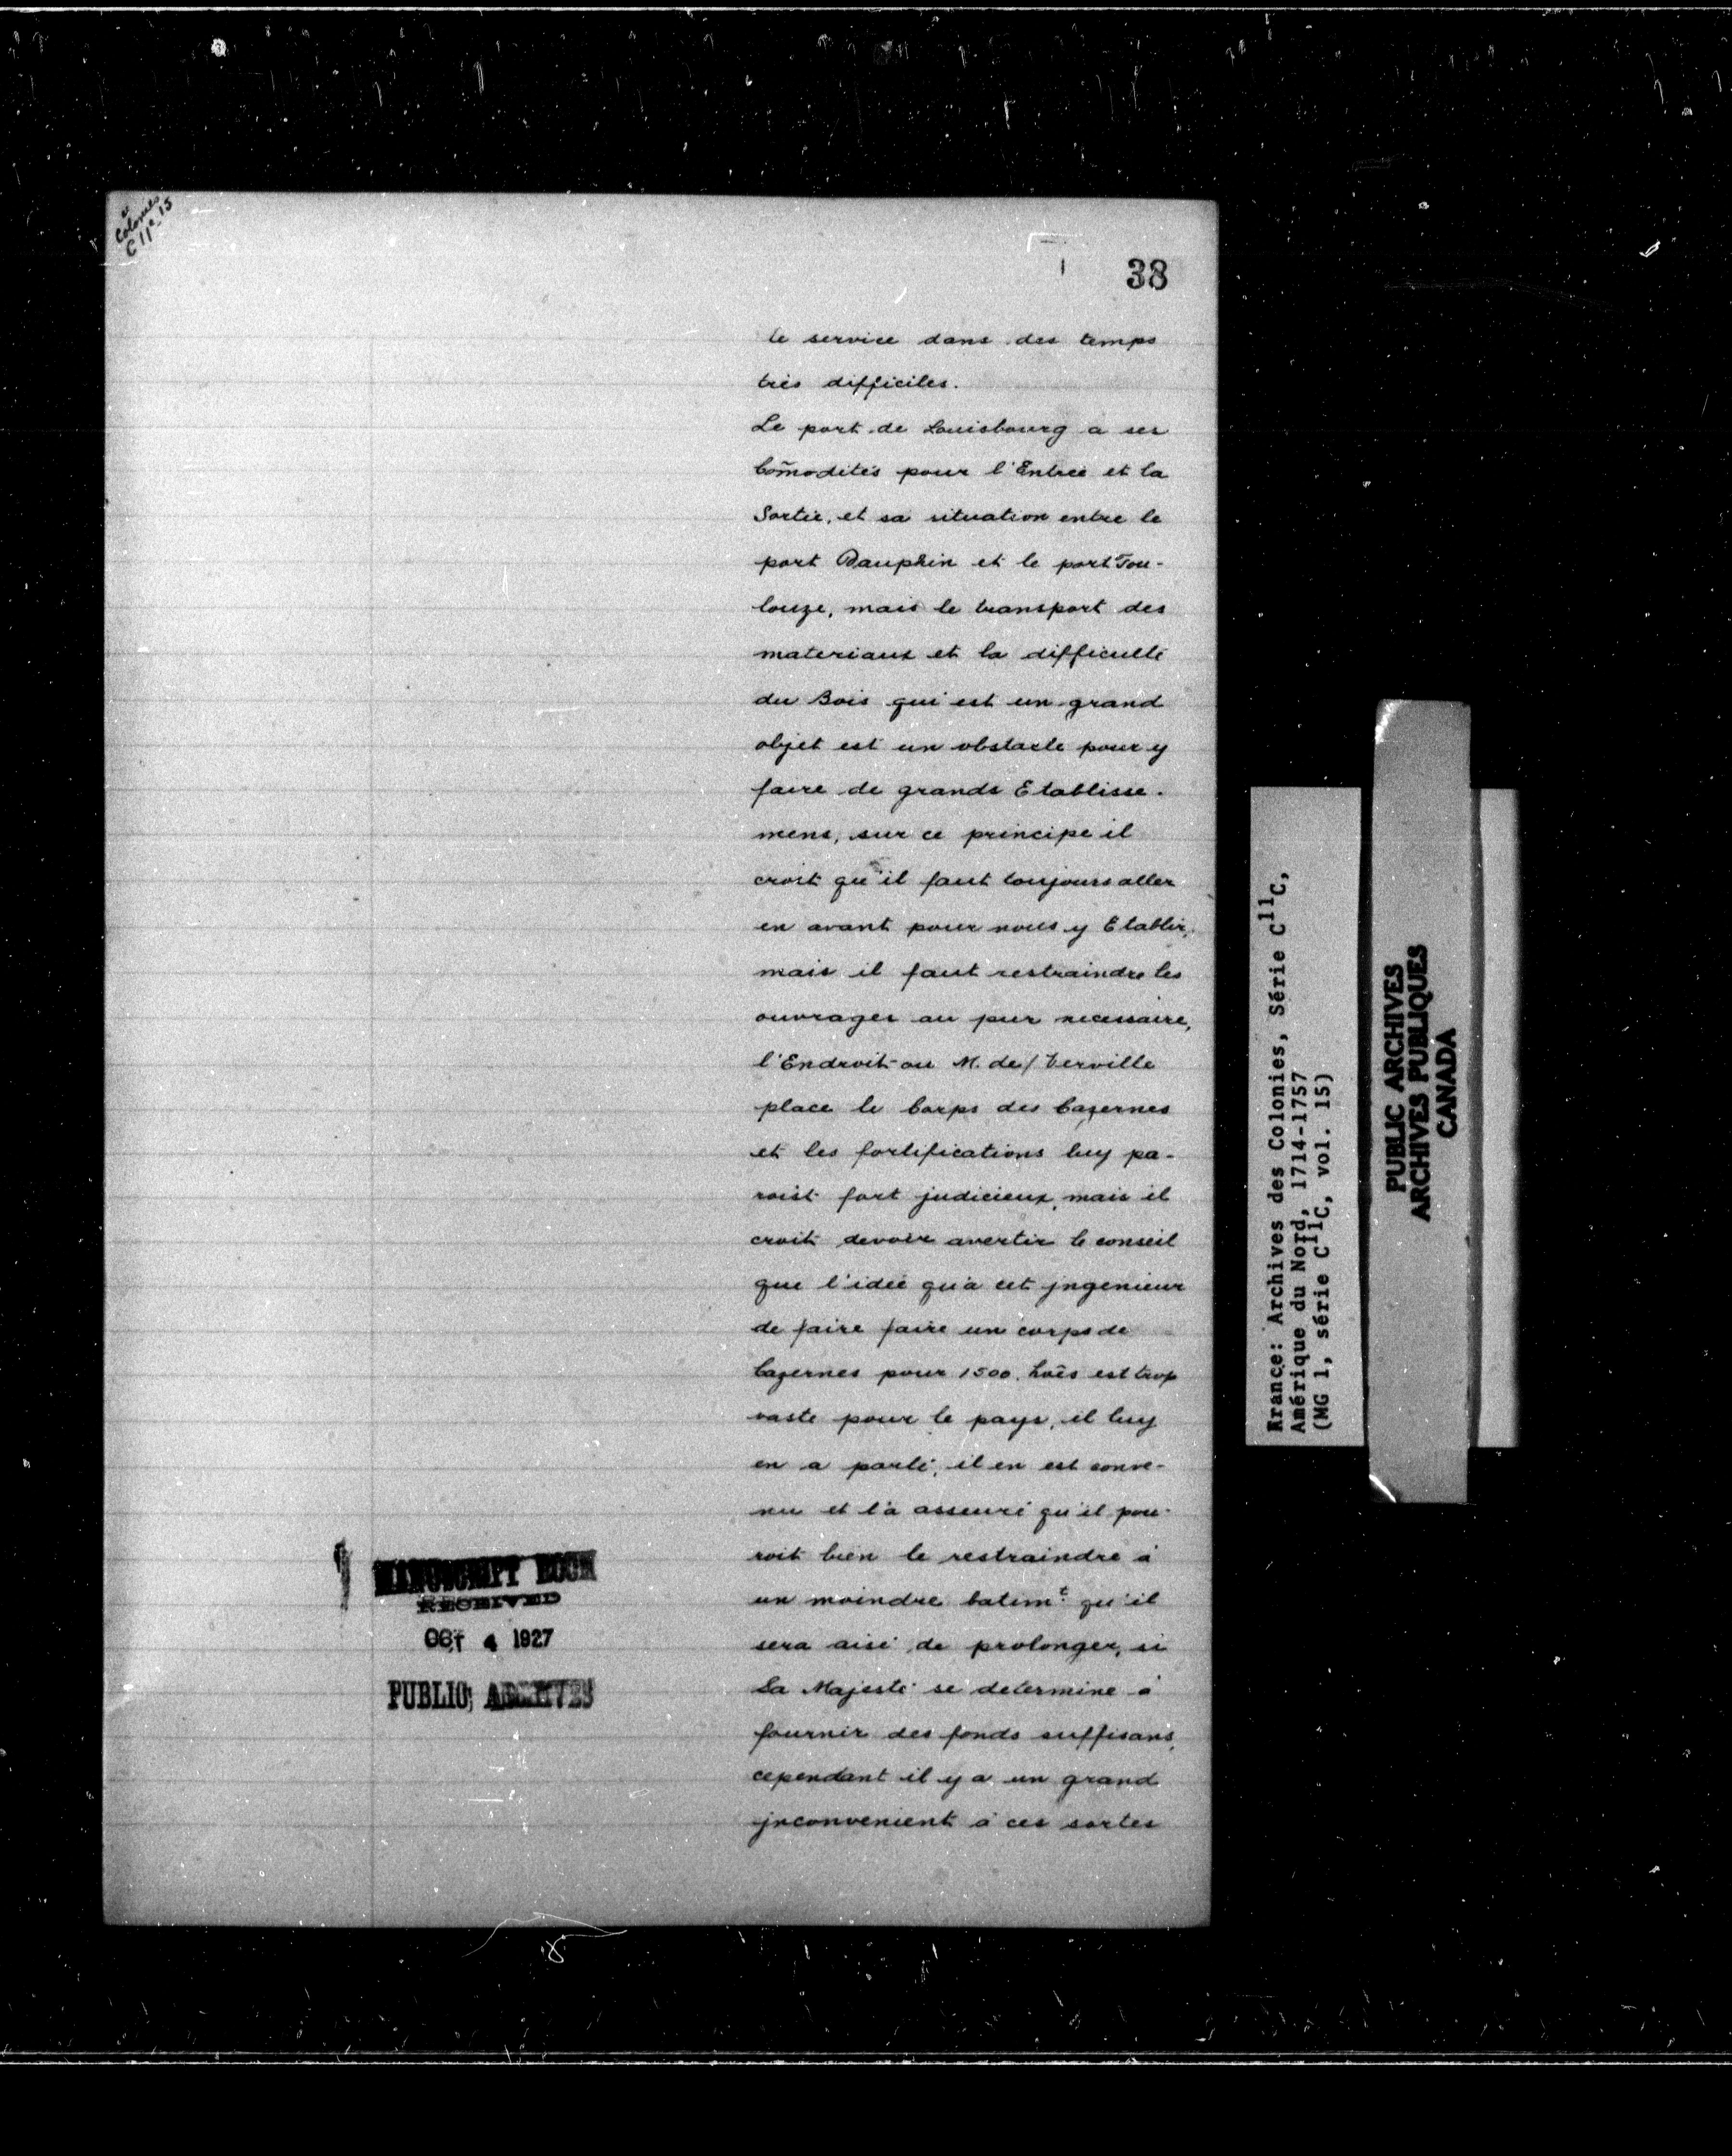 Colonies
C 11c_15
38
le service dans des temps
très difficiles.
Le port de Louisbourg a ses
Com̃odités pour l'Entrée et la
Sortie, et sa situation entre le
port Dauphin et le port Tou-
louze, mais le transport des
materiaux et la difficulté
du Bois qui est un grand
objet est un obstacle pour y
faire de grands Etablisse-
mens, sur ce principe il
croit qu'il faut toujours aller
en avant pour nous y Etablir,
mais il faut restraindre les
ouvrages au pur necessaire,
l'Endroit ou M. de / Verville
place le Corps des Cazernes
et les fortifications luy pa-
roist fort judicieux, mais il
croit devoir avertir le conseil
que l'idée qu'a cet jngenieur
de faire faire un corps de
Cazernes pour 1500. hoẽs est trop
vaste pour le pays, il luy
en a parlé, il en est conve-
nu et l'a asseuré qu'il pou-
roit bien le restraindre à
un moindre batimt qu'il
sera aisé de prolonger, si
Sa Majesté se determine à
fournir des fonds suffisans,
cependant il y a un grand
jnconvenient à ces sortes
MANUSCRIPT ROOM
RECEIVED
OCT 4 1927
PUBLIC ARCHIVES
France: Archives des Colonies, Série C11C,
Amérique du Nord, 1714-1757
(MG 1, série C11C, vol. 15)
PUBLIC ARCHIVES
ARCHIVES PUBLIQUES
CANADA